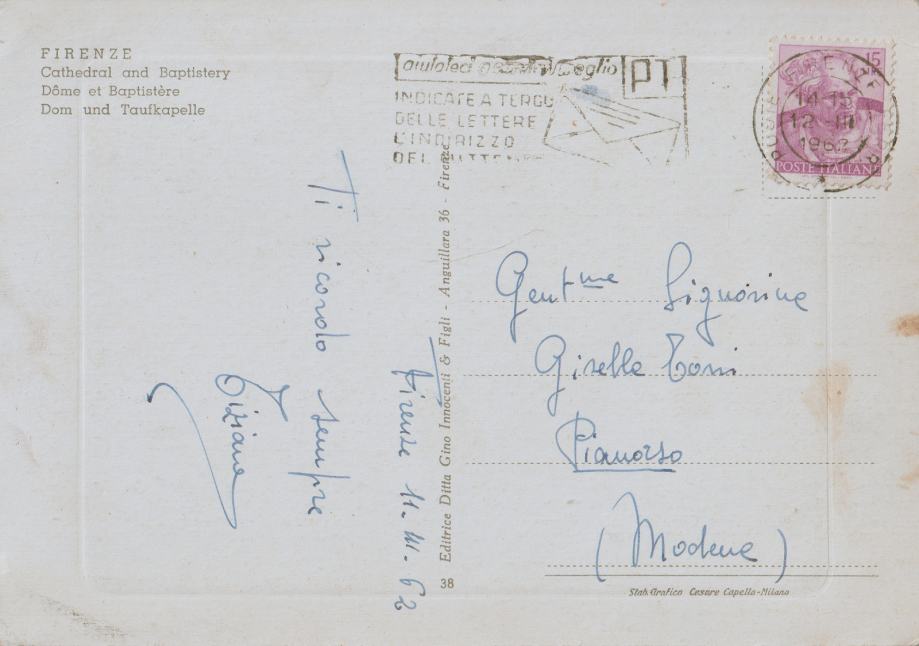 FIRENZE
Cathedral and Baptistery
Dôme et Baptistère
Dom und Taufkapelle
aiutateci meglio
PT
INDICATE A TERGO
DELLE LETTERE
L'INDIRIZZO
DEL MITTENTE
FIRENZE
14-15
12 III
1962
15
POSTE ITALIANE
Ti ricordo sempre
Tiziana
Firenze 11-III-62
Editrice Ditta Gino Innocenti & Figli - Anguillara 36 - Firenze
38
Gent.me Signorine
Giselle Toni
Pianorso
(Modena)
Stab. Grafico Cesare Capello-Milano